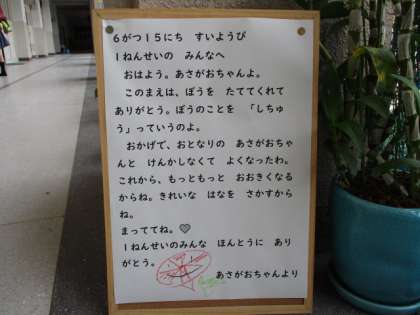 6がつ15にち　すいようび
1ねんせいの　みんなへ
おはよう。あさがおちゃんよ。
このまえは、ぼうを　たててくれて
ありがとう。ぼうのことを　「しちゅ
う」っていうのよ。
おかげで、おとなりの　あさがおちゃ
んと　けんかしなくて　よくなったわ。
これから、もっともっと　おおきくなる
からね。きれいな　はなを　さかすから
ね。
まっててね。♡
1ねんせいのみんな　ほんとうに　あり
がとう。
あさがおちゃんより